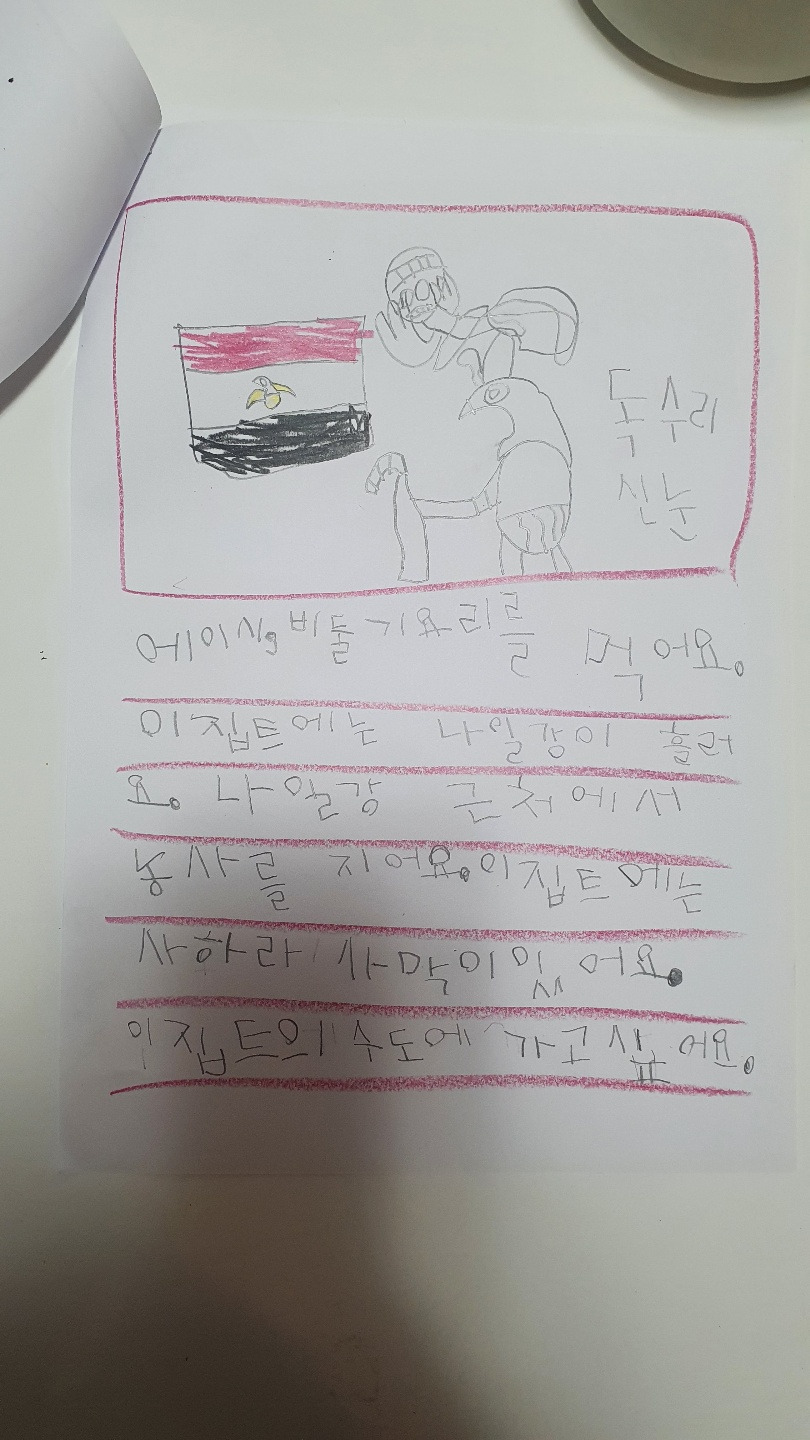 독수리
신눈
에이시, 비둘기요리를 먹어요.
이집트에는 나일강이 흘러
요. 나일강 근처에서
농사를 지어요. 이집트에는
사하라 사막이있어요.
이집트의 수도에 가고싶어요.